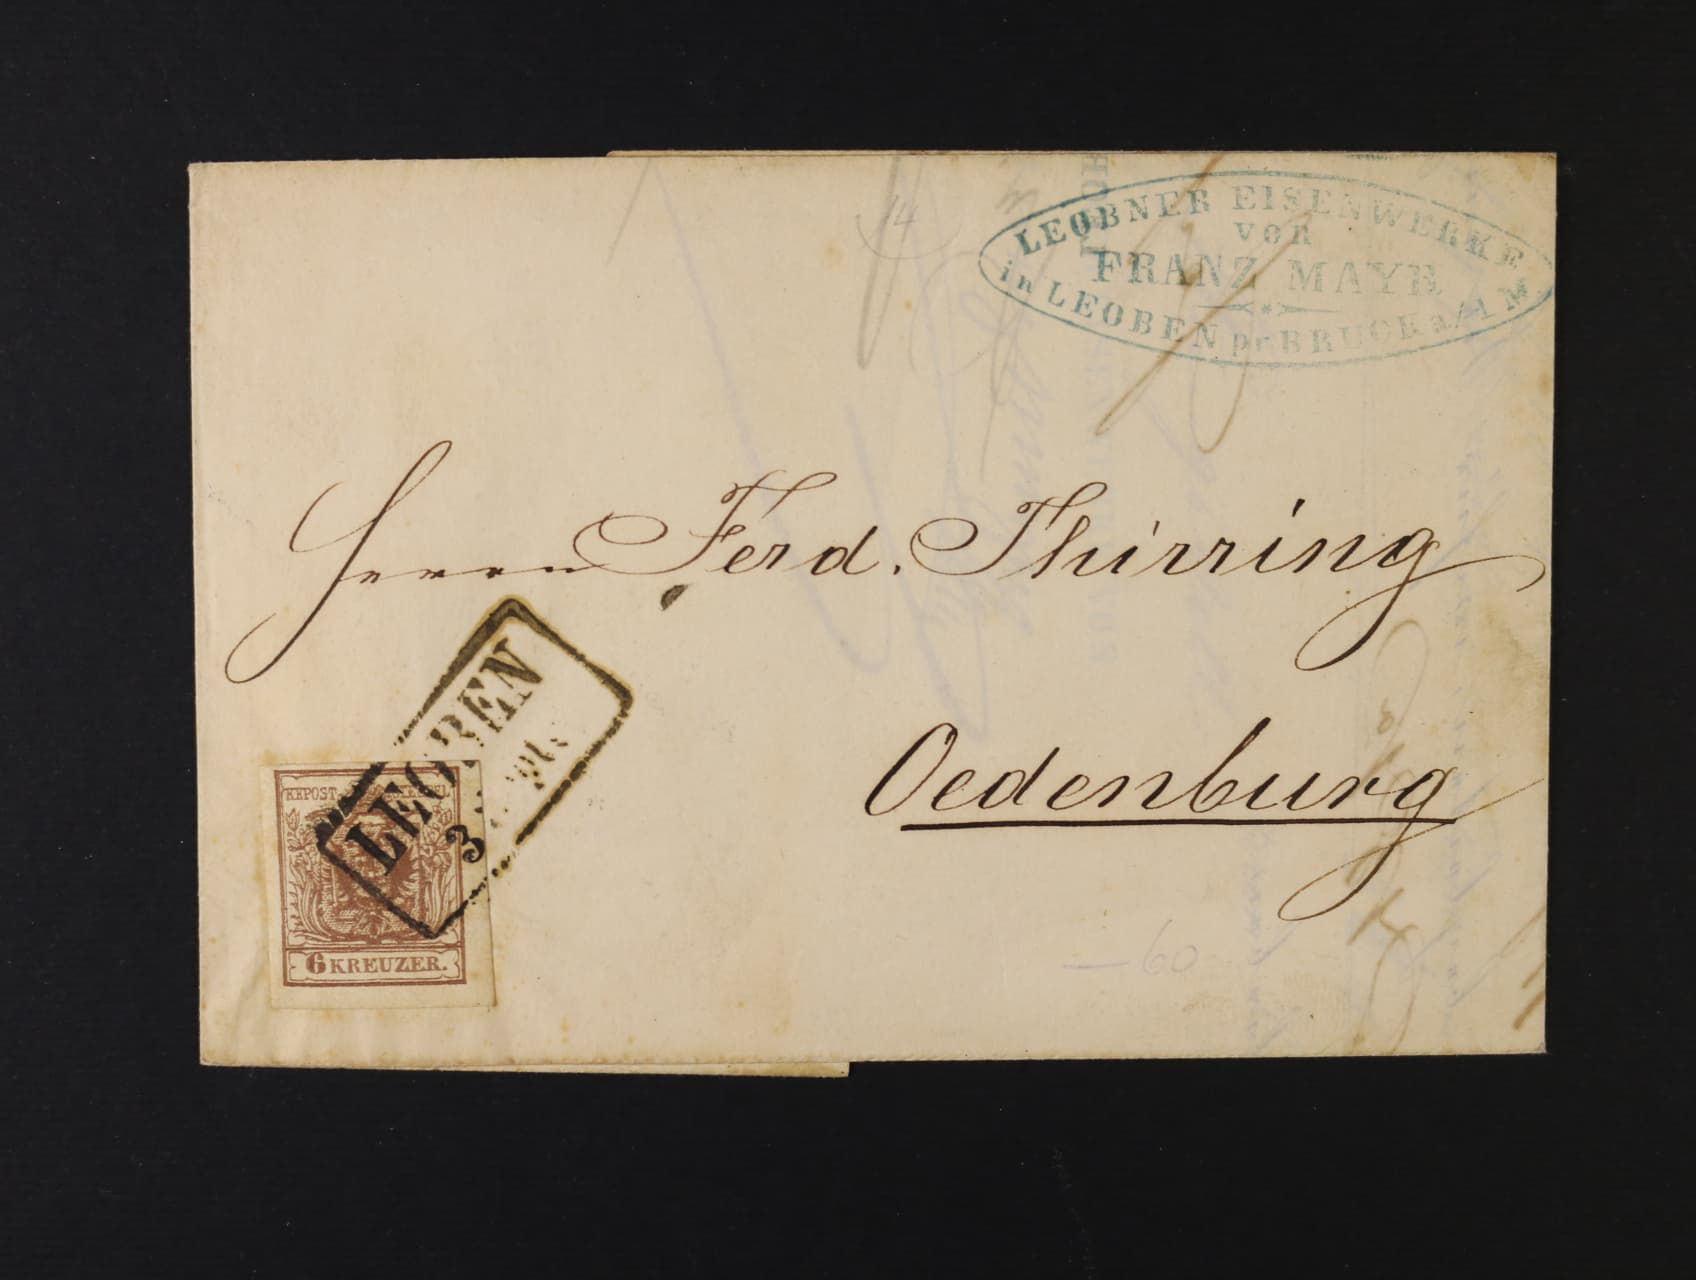 14
LEOBNER EISENWERKE
VON
FRANZ MAYR
in LEOBEN pr BRUCK a/1 M
Herrn Ferd. Thirring
Oedenburg
LEOBEN
3
KKPOST-STEMPEL
6 KREUZER.
— 60